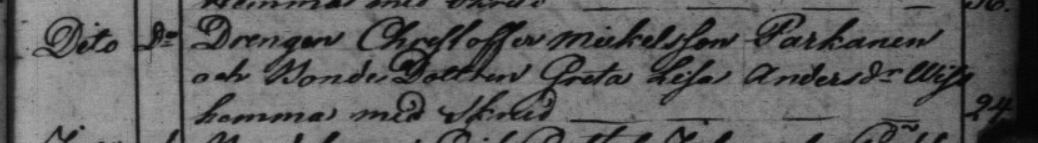 hemma med Skrud 36.
Dito do Drengen Christoffer Mickelsson Parkanen
och Bonde Dottren Greta Lisa Andersdr Wis
hemma med Skrud 24